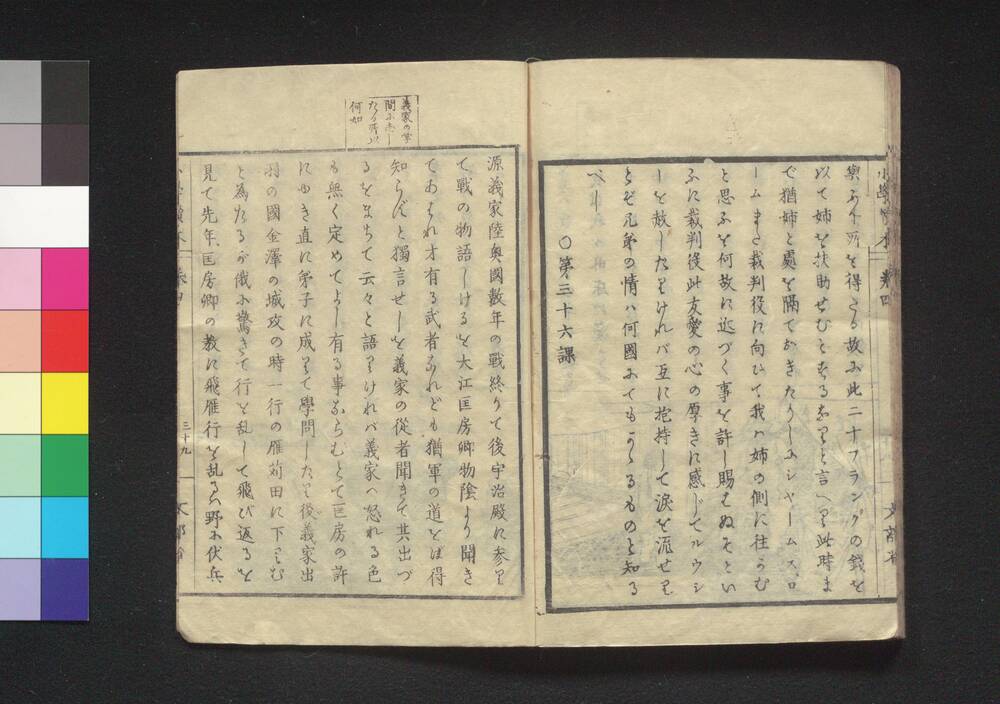 小學讀本 卷四 文部省
與ふる所を得たる故に此二十フランクの錢を
以て姉を扶助せむとするなりと言へり此時ま
で猶姉と處を隔ておきたりしにシャームスロ
ームまた裁判役に向ひて我は姉の側に往かむ
と思ふを何故に近づく事を許し賜はぬぞとい
ふに裁判役此友愛の心の厚きに感じてルウシ
ーを放したりければ互に抱持して涙を流せり
とぞ兄弟の情ハ何國にてもかゝるものと知る
べし
○第三十六課
義家の學
問に志し
たる所以
何如
源義家陸奧國數年の戰終りて後宇治殿に參り
て戰の物語しけるを大江匡房卿物陰より聞き
てあはれ才有る武者なれども猶軍の道をば得
知らずと獨言せしを義家の從者聞きて其出づ
るをまちて云々と語りければ義家ハ怒れる色
も無く定めてよし有る事ならむとて匡房の許
にゆき直に弟子に成りて學問したり後義家出
羽の國金澤の城攻の時一行の雁苅田に下りむ
と為たるが俄に驚きて行を乱して飛び返るを
見て先年匡房卿の教に飛雁行を乱るハ野に伏兵
三十九